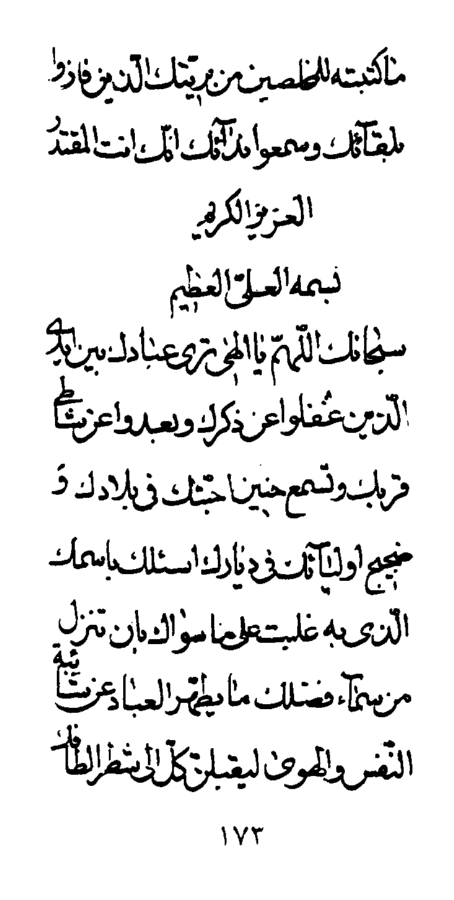 ما كتبته للمخلصين من بريتك الّذين فازوا
بلقآئك و سمعوا ندآئك انّك انت المقتدر
العزيز الكريم
بسمه العلىّ العظيم
سبحانك اللّهمّ يا الهى ترى عبادك بين ايدى
الّذين غفلوا عن ذكرك و بعدوا عن شاطى
قربك و تسمع حنين احبّتك فى بلادك و
ضجيج اوليآئك فى ديارك اسئلك باسمك
الّذى به غلبت على ما سواك بان تنزل
من سمآء فضلك ما يطهّر العباد عن شائبة
النّفس و الهوى ليقبلنّ كلّ الى شطر الطافك
١٧٣